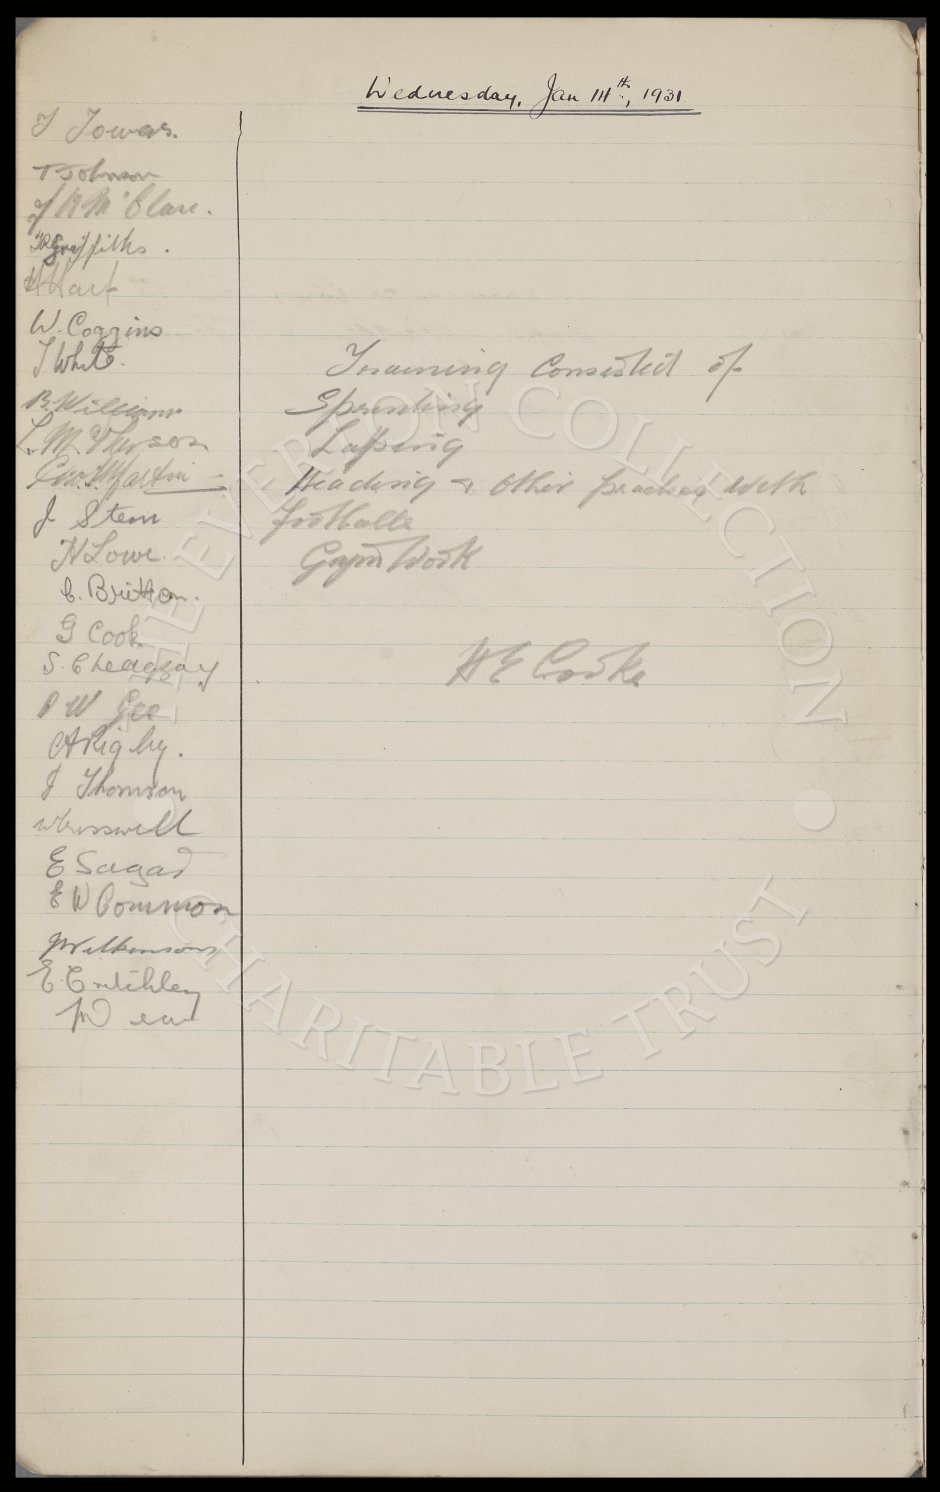 Wednesday, Jan 14th, 1931
T Towers.
T Johnson
J R M'Clure.
T P Griffiths.
H Hart
W. Coggins
T White.
B Williams
L. McPherson
Geo. Martin
J Stein
H Lowe.
C. Britton.
G Cook
S. Chedgzoy
P W Gee
A Rigby.
J Thomson
W Cresswell
E Sagar
E W Common
J Wilkinson
E. Critchley
Training Consisted of
Sprinting
Lapping
Heading & other practice with
footballs
Gym Work
H E Cooke
THE EVERTON COLLECTION • CHARITABLE TRUST •